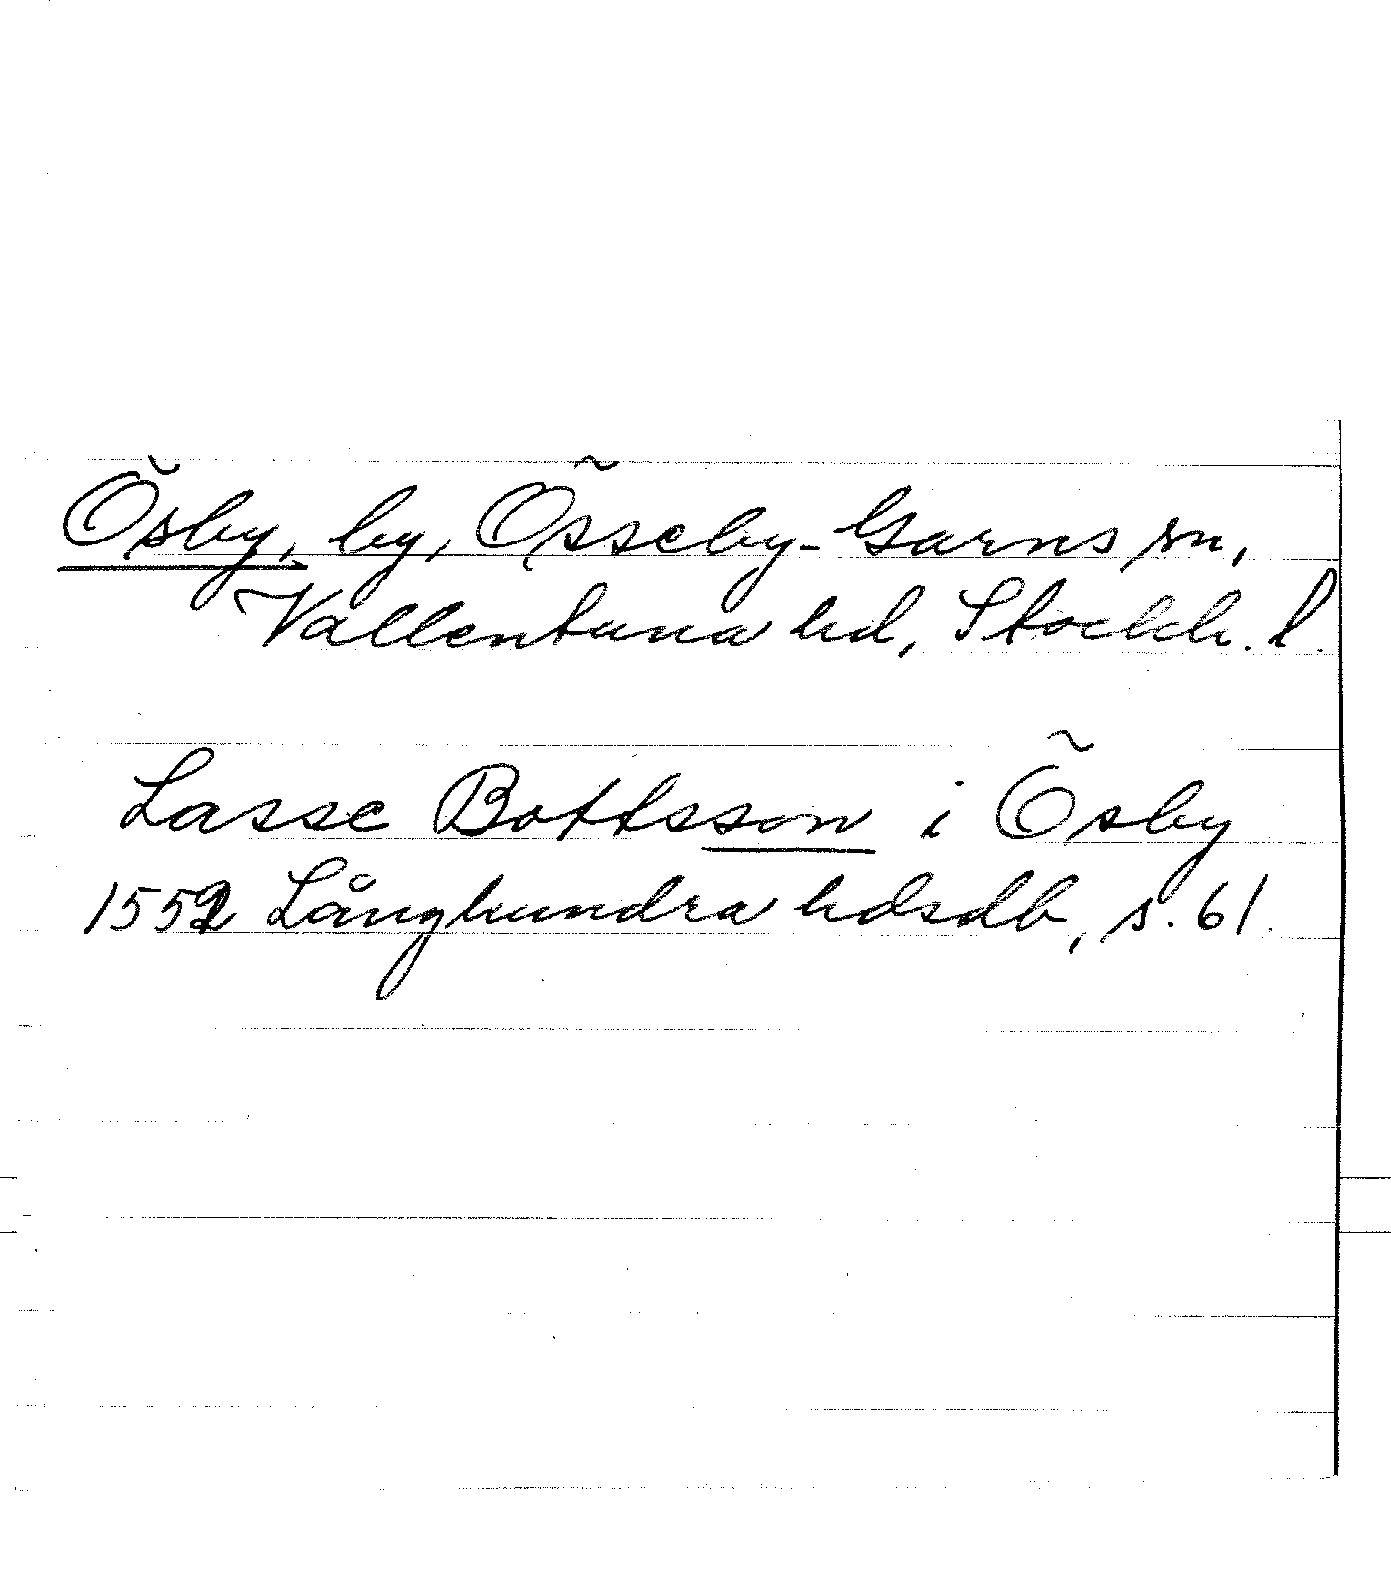 Ösby, by, Össeby-Garns sn,
Vallentuna hd, Stockh. l.
Lasse Bottsson i Ösby
1552 Långhundra hdsdb, s. 61.